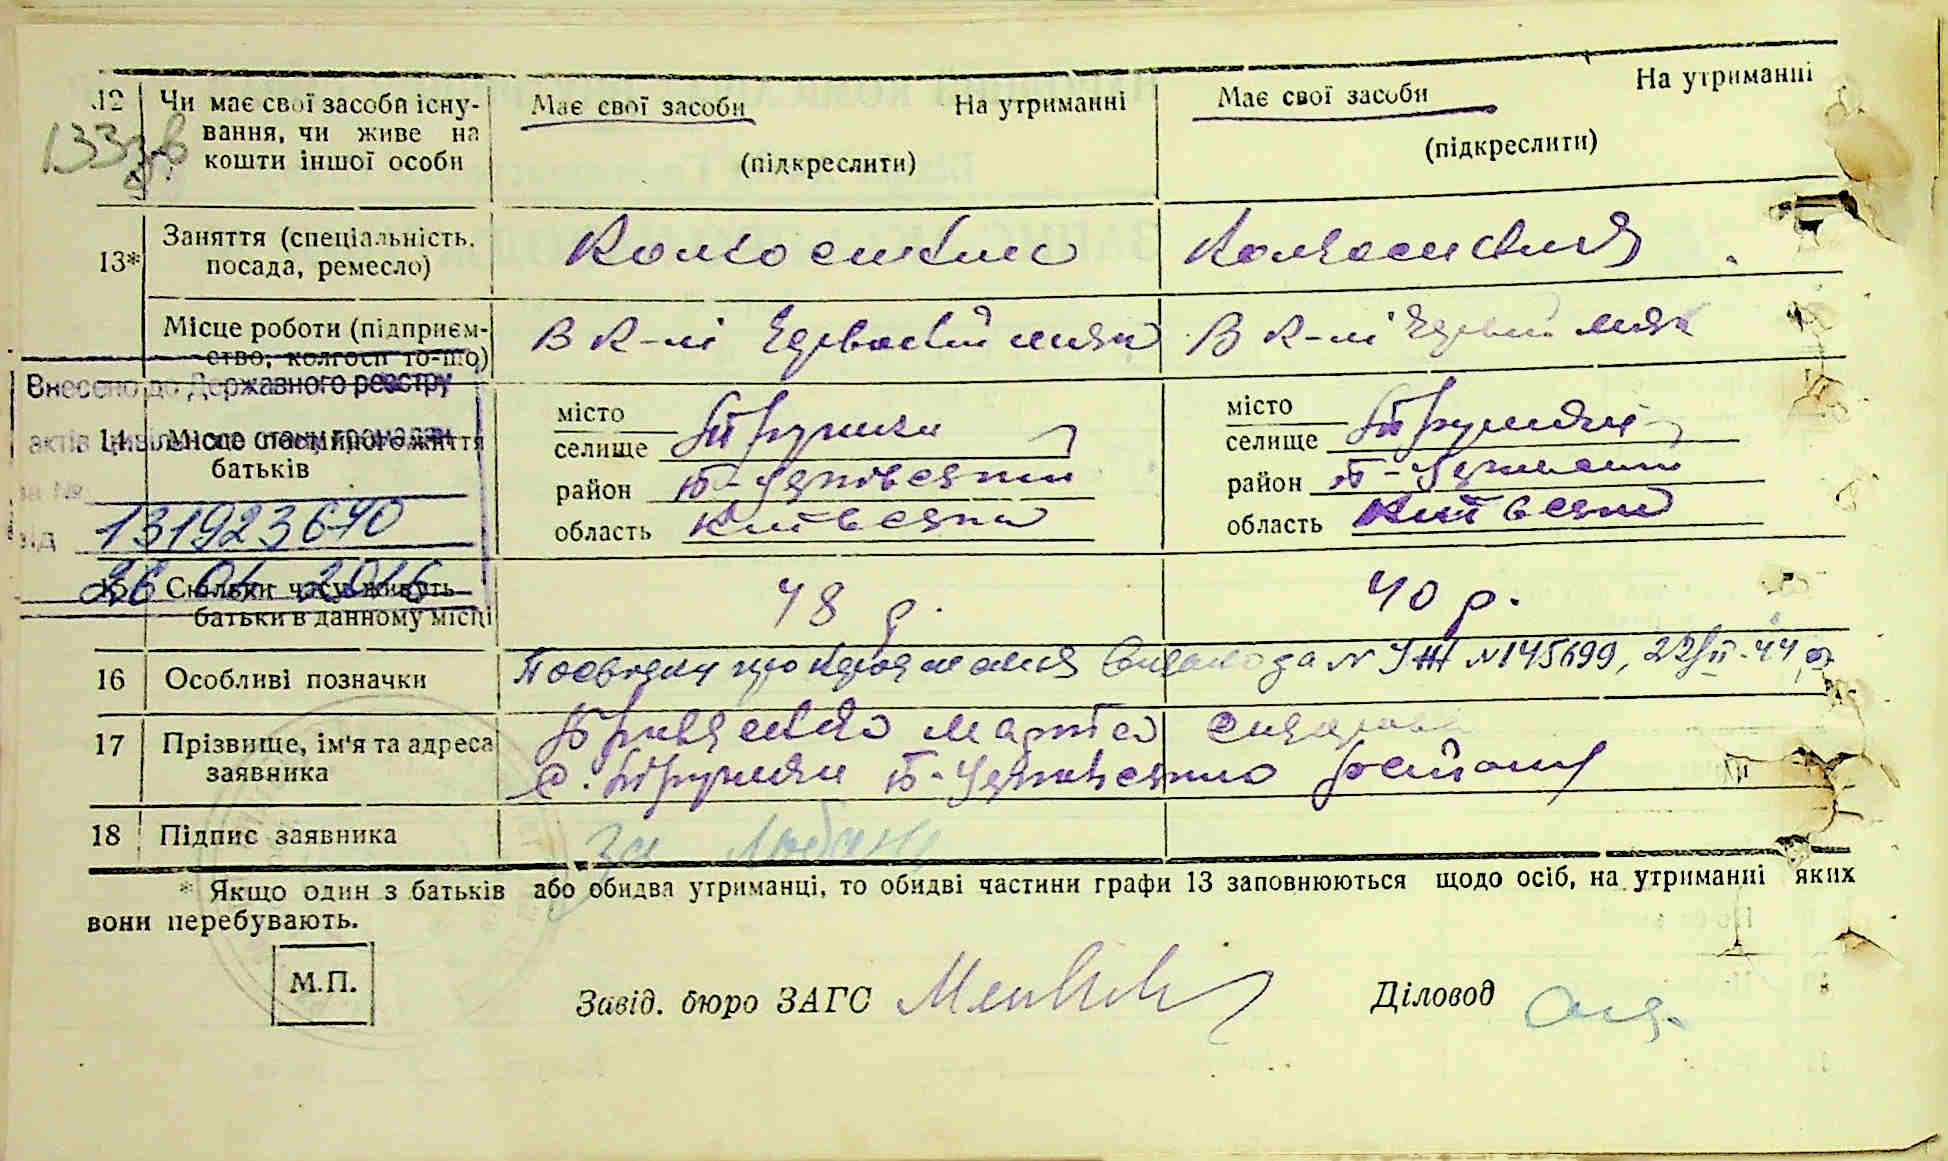 12 Чи має свої засоби існу-
вання, чи живе на
кошти іншої особи
133зв
Має свої засоби На утриманні
(підкреслити)
Має свої засоби На утриманні
(підкреслити)
13* Заняття (спеціальність,
посада, ремесло)
Колгоспник
Колгоспниця
Місце роботи (підприєм-
ство, колгосп то-що)
В к-пі Червоний маяк
В к-пі Червоний маяк
Внесено до Державного реєстру
актів цивільного стану громадян
за № 131923690
від 26 01 2016
14 Місце постійного життя
батьків
місто
селище
район
область Київська
місто
селище
район
область Київська
15 Скільки часу живуть
батьки в данному місці
48 р.
40 р.
16 Особливі позначки
№ УЖ №145699, 22/II-44 р
17 Прізвище, ім'я та адреса
заявника
Марта
с. району
18 Підпис заявника
* Якщо один з батьків або обидва утриманці, то обидві частини графи 13 заповнюються щодо осіб, на утриманні яких
вони перебувають.
М.П.
Завід. бюро ЗАГС
Діловод